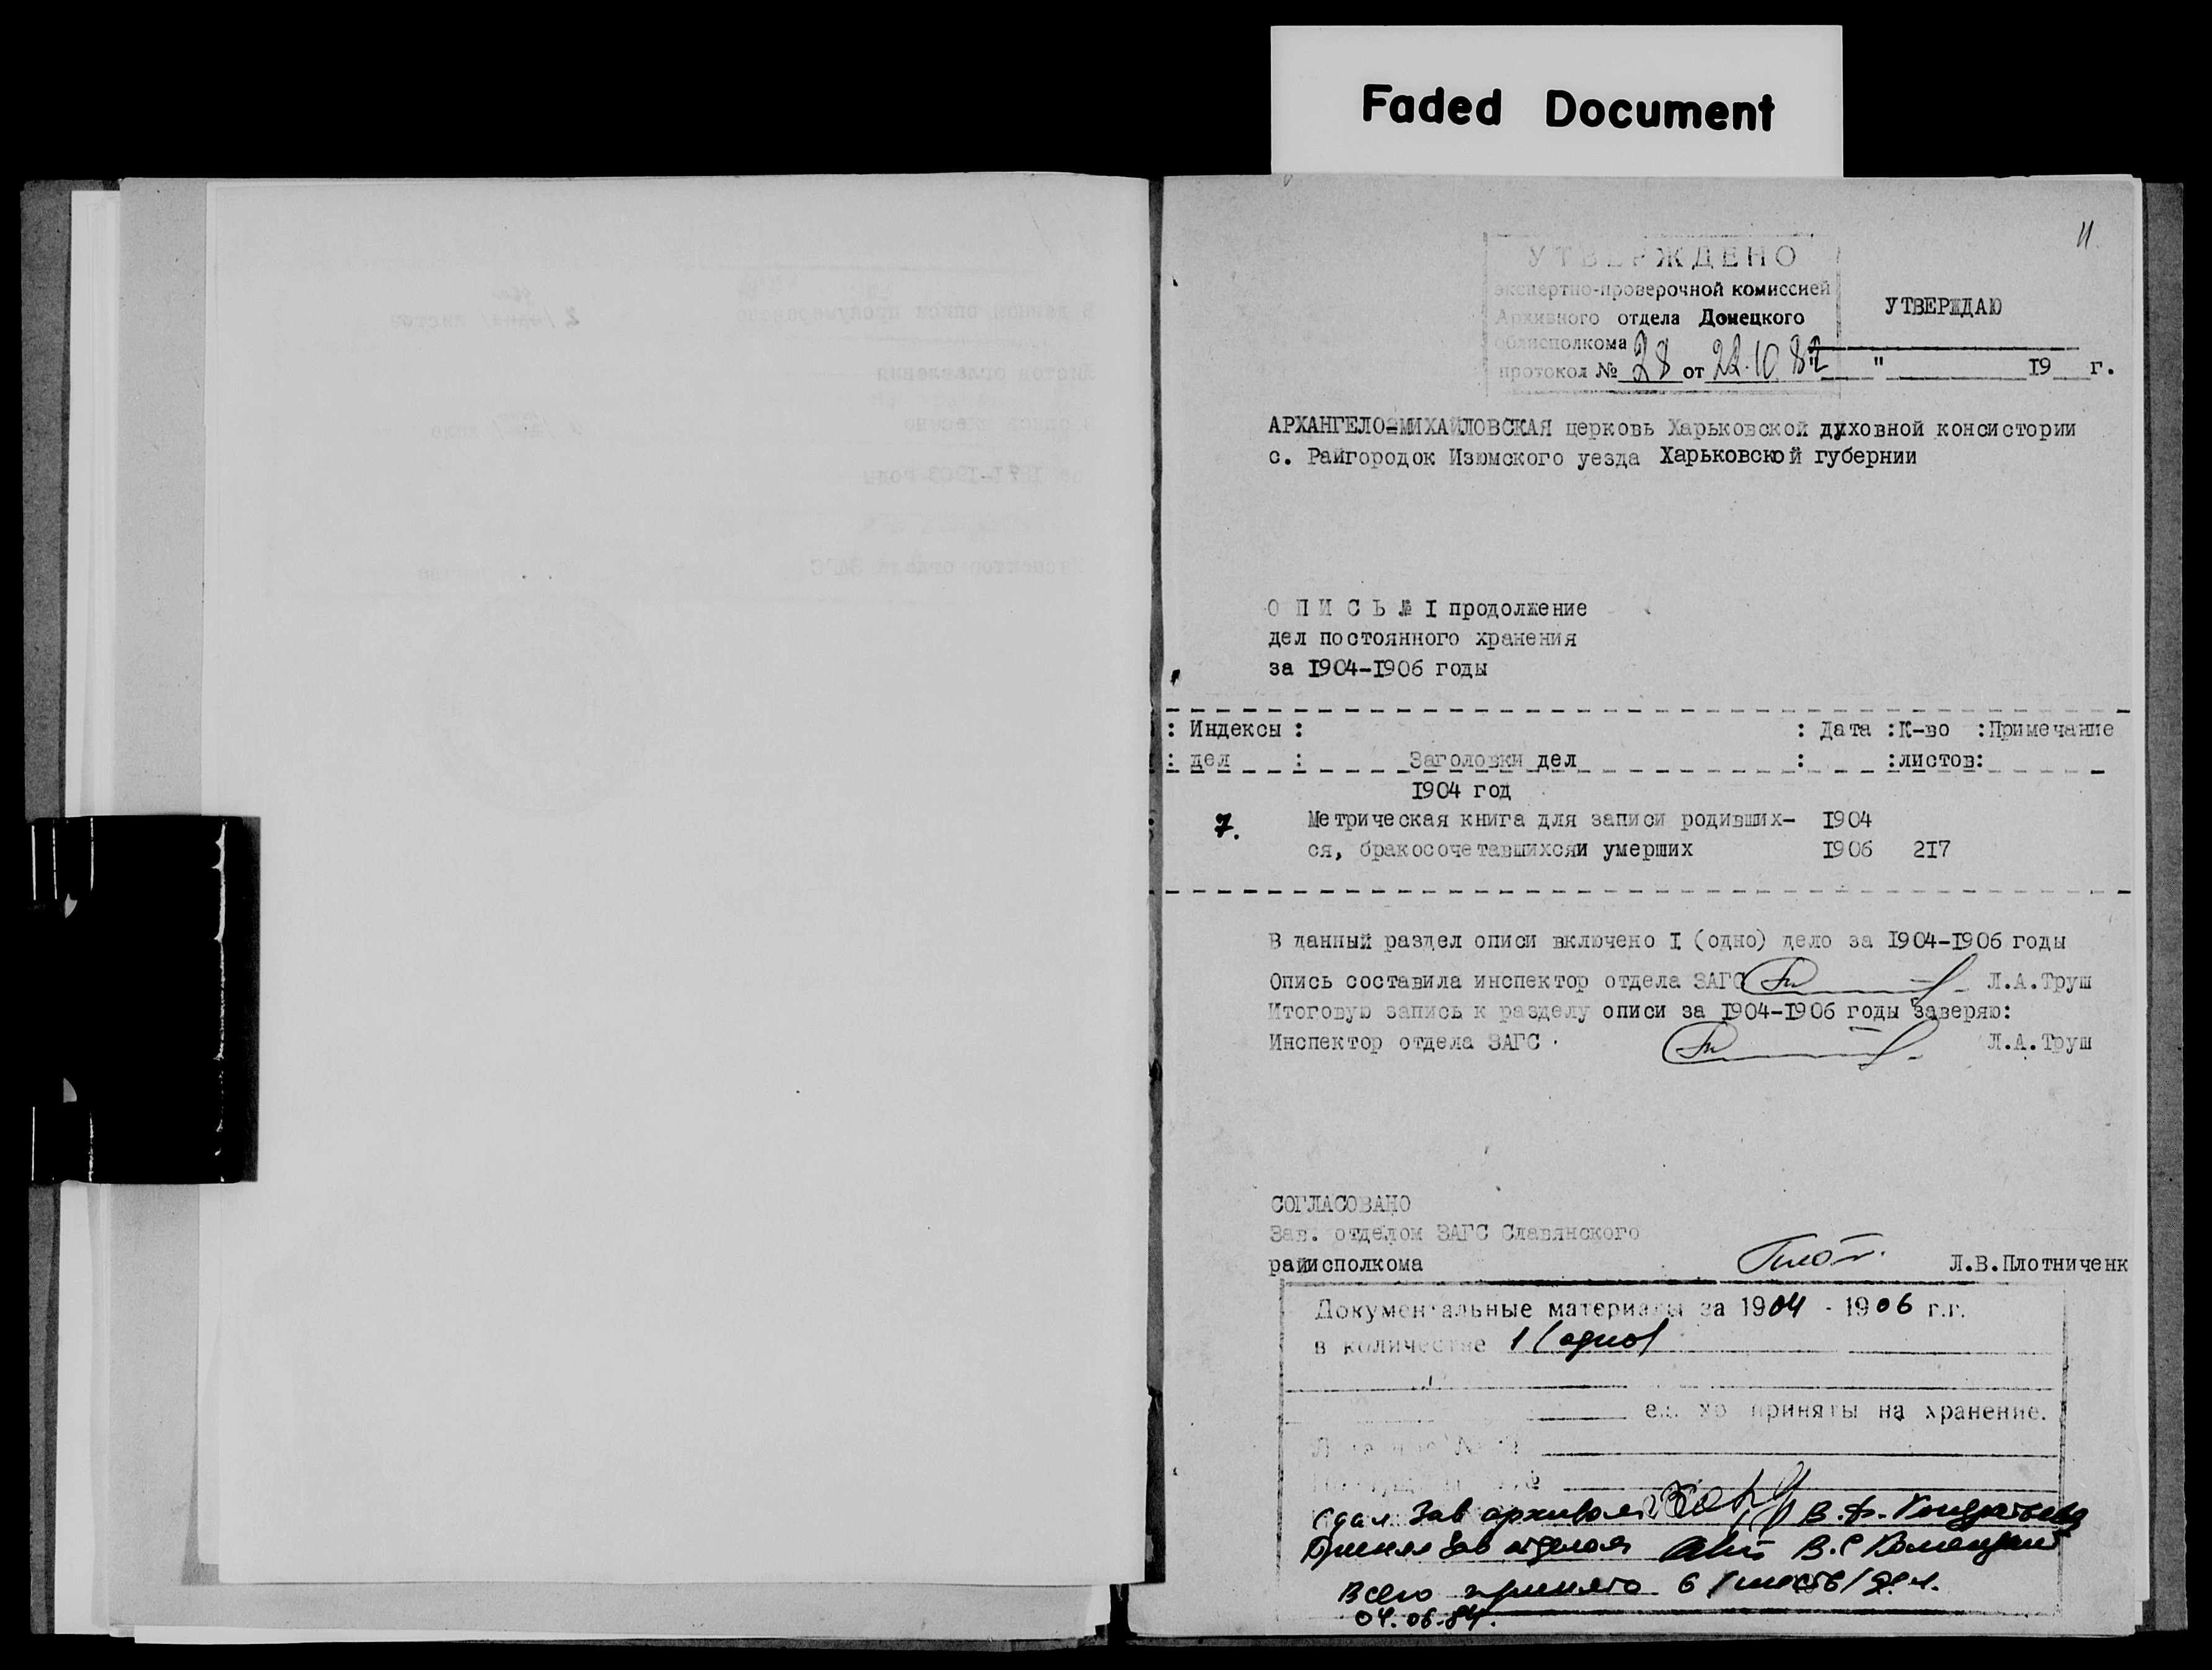 Faded Document
11.
УТВЕРЖДЕНО
экспертно-проверочной комиссией
Архивного отдела Донецкого
облисполкома
протокол № 28 от 22.10 82
УТВЕРЖДАЮ
" " 19 г.
АРХАНГЕЛО-МИХАЙЛОВСКАЯ церковь Харьковской духовной консистории
с. Райгородок Изюмского уезда Харьковской губернии
О П И С Ь № I продолжение
дел постоянного хранения
за I904-I906 годы
: Индексы : : Дата :К-во :Примечание
: дел : Заголовки дел : :листов:
I904 год
7. Метрическая книга для записи родивших- I904
ся, бракосочетавшихсяи умерших I906 2I7
В данный раздел описи включено I (одно) дело за I904-I906 годы
Опись составила инспектор отдела ЗАГС Л.А.Труш
Итоговую запись к разделу описи за I904-I906 годы заверяю:
Инспектор отдела ЗАГС Л.А.Труш
СОГЛАСОВАНО
Зав. отделом ЗАГС Славянского
райисполкома Л.В.Плотниченк
Документальные материалы за 1904 - 1906 г.г.
в количестве 1 (одно)
ед. хр приняты на хранение.
Сдал Зав архивом В.Ф. Кондратьева
Принял Зав отделом В.С
Всего принято 6 /шесть/ дел.
04.06.84.